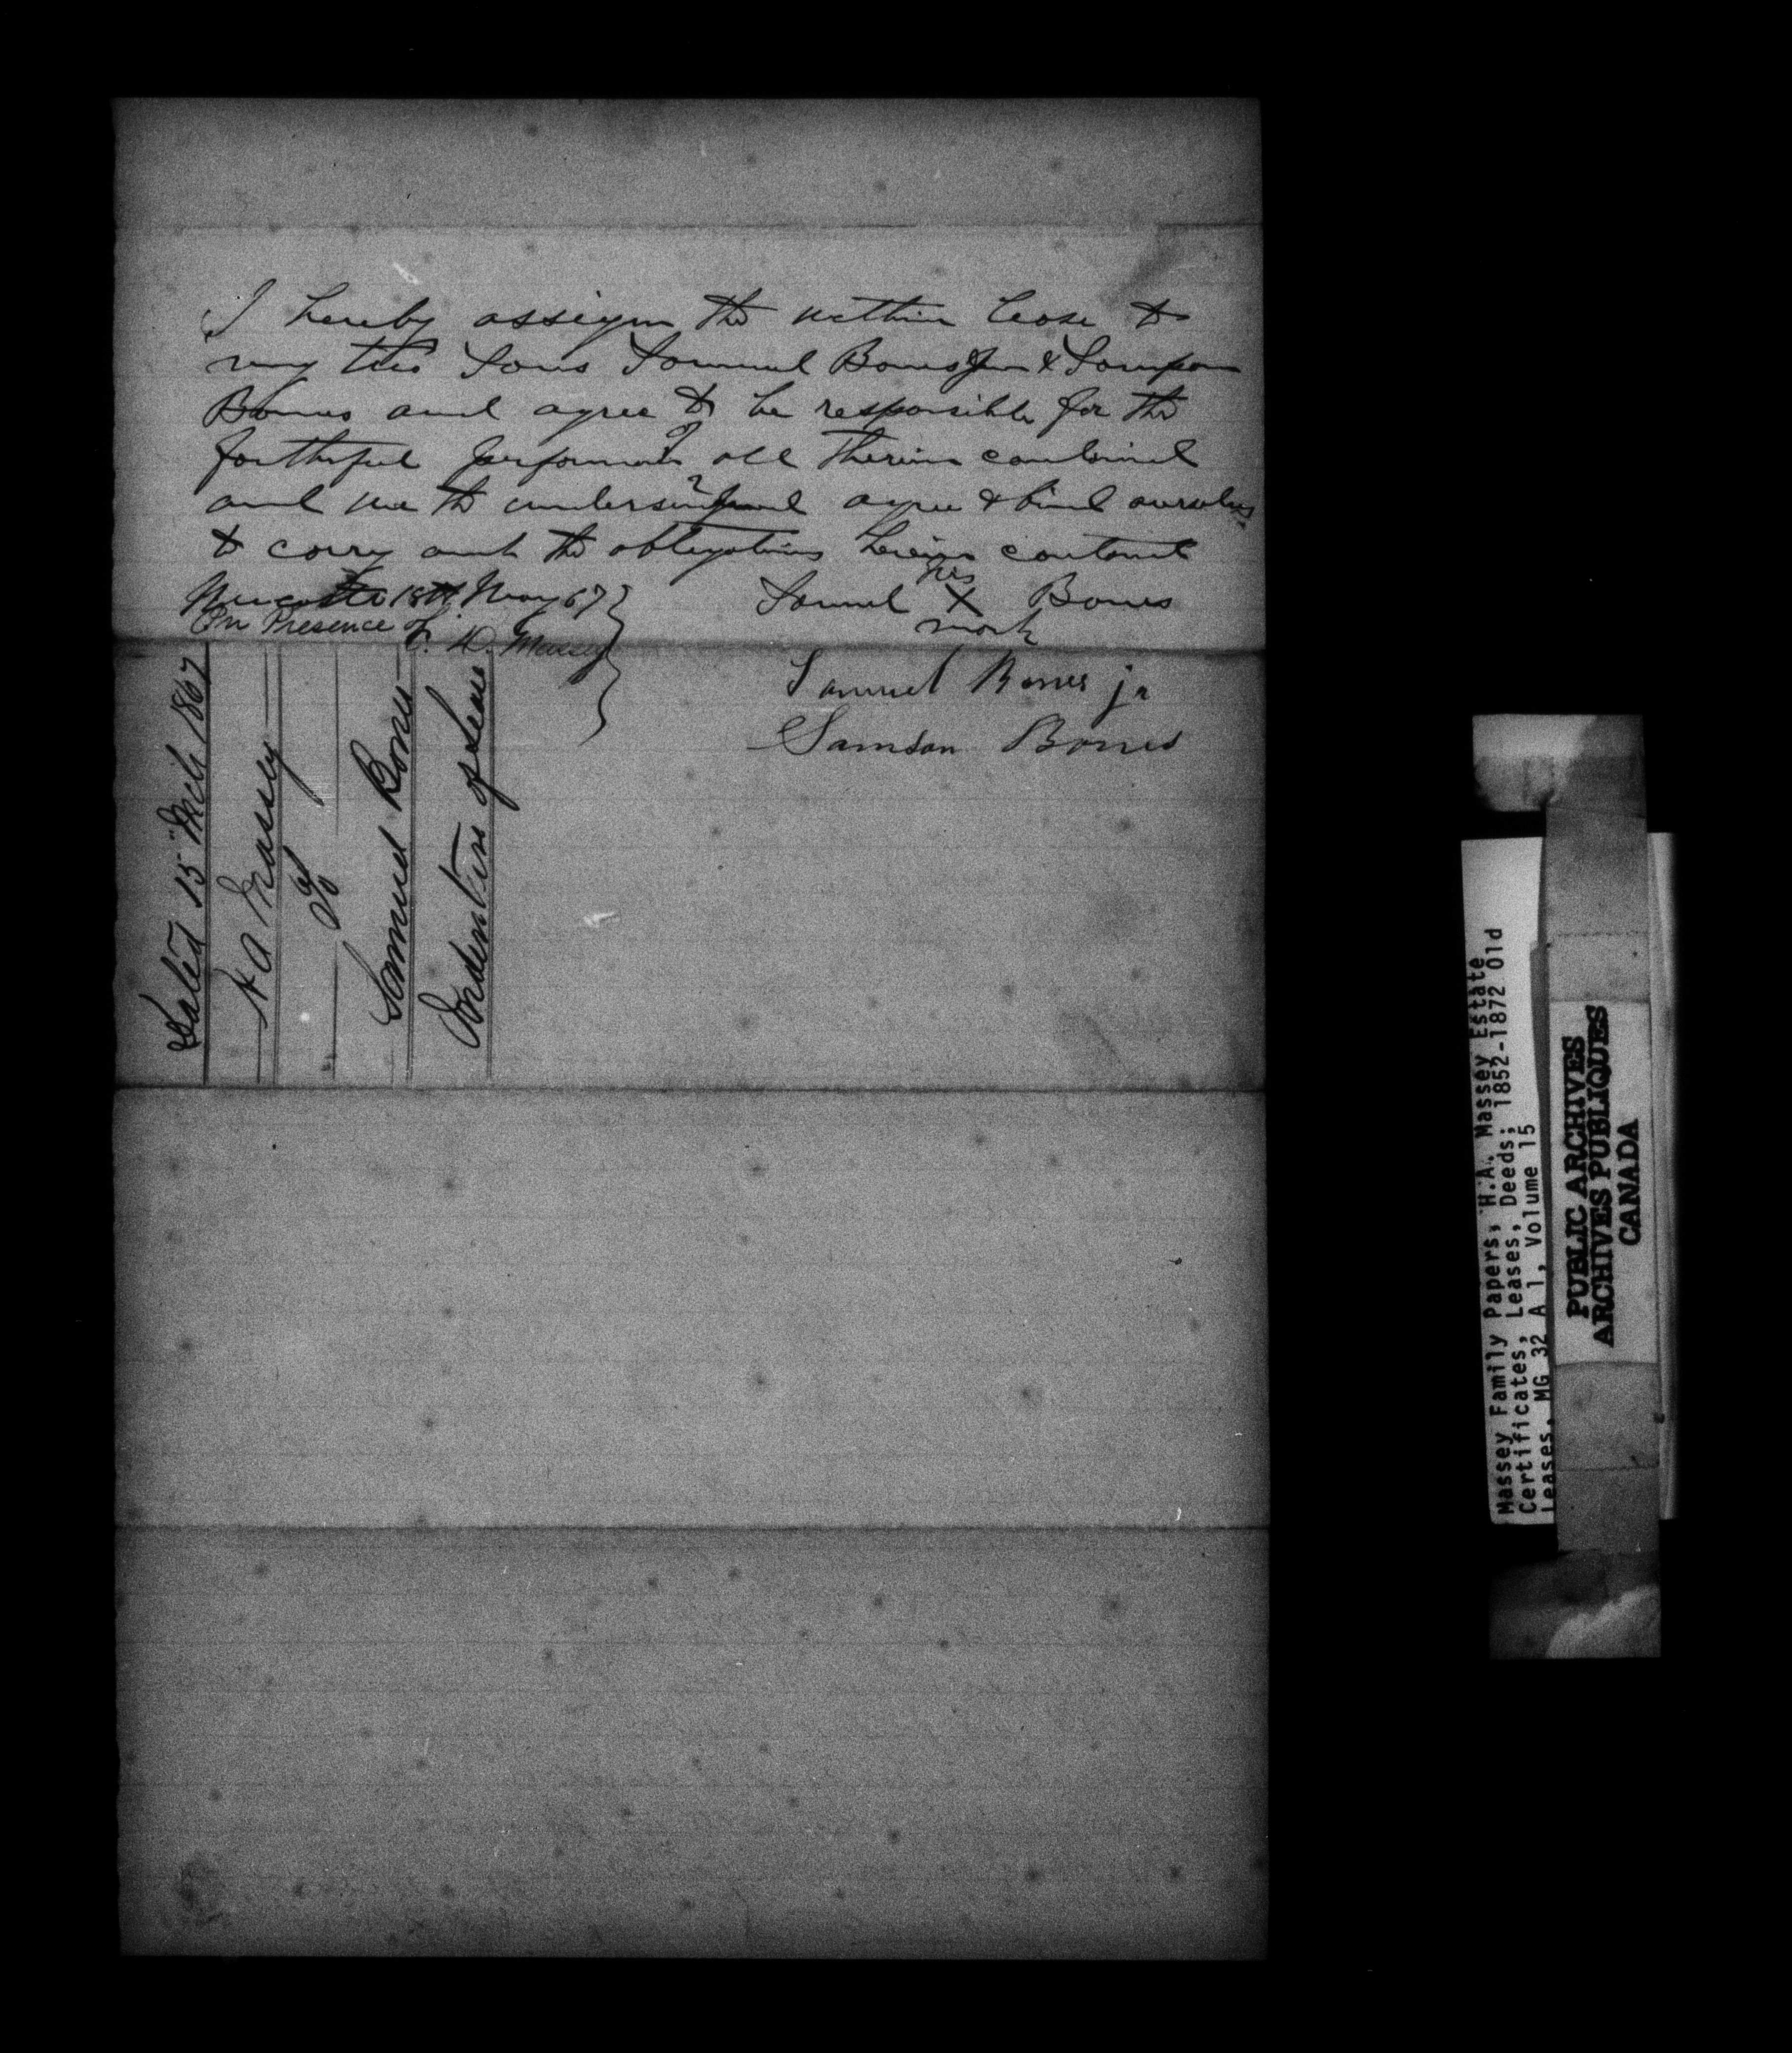 I hereby assign the within lease to
my two Sons Samuel Bones Jun & Sampson
Bones and agree to be responsible for the
faithful performance of all therein contained
and we the undersigned agree & bind ourselves
to carry out the obligations herein contained
Newcastle 18th May 67
In Presence of
C. D. Massey
his
Samuel X Bones
mark
Samuel Bones jr
Samson Bones
Dated 15" Mch 1867
H A Massey
to
Samuel Bones
Indenture of Lease
Massey Family Papers, H.A. Massey Estate
Certificates, Leases, Deeds; 1852-1872 Old
Leases. MG 32 A 1, Volume 15
PUBLIC ARCHIVES
ARCHIVES PUBLIQUES
CANADA